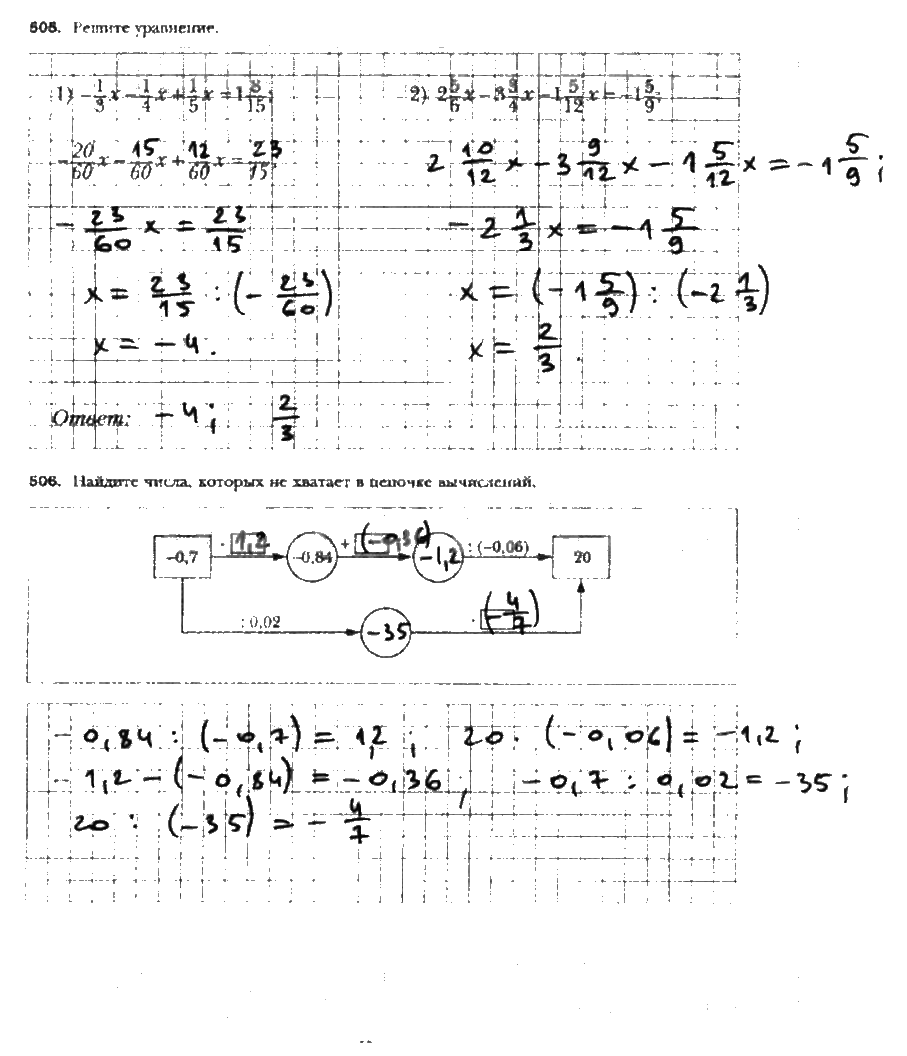 505. Решите уравнение.
1) -1/3 x - 1/4 x + 1/5 x = 1 8/15;
2) 2 5/6 x - 3 3/4 x - 1 5/12 x = -1 5/9;
-20/60 x - 15/60 x + 12/60 x = 23/15
2 10/12 x - 3 9/12 x - 1 5/12 x = -1 5/9;
-23/60 x = 23/15
-2 1/3 x = -1 5/9
x = 23/15 : (-23/60)
x = (-1 5/9) : (-2 1/3)
x = -4.
x = 2/3.
Ответ: -4; 2/3
506. Найдите числа, которых не хватает в цепочке вычислений.
-0,7 · 1,2 -0,84 + (-0,36) -1,2 : (-0,06) 20
: 0,02 -35 · (-4/7)
-0,84 : (-0,7) = 1,2; 20 · (-0,06) = -1,2;
-1,2 - (-0,84) = -0,36, -0,7 : 0,02 = -35;
20 : (-35) = -4/7